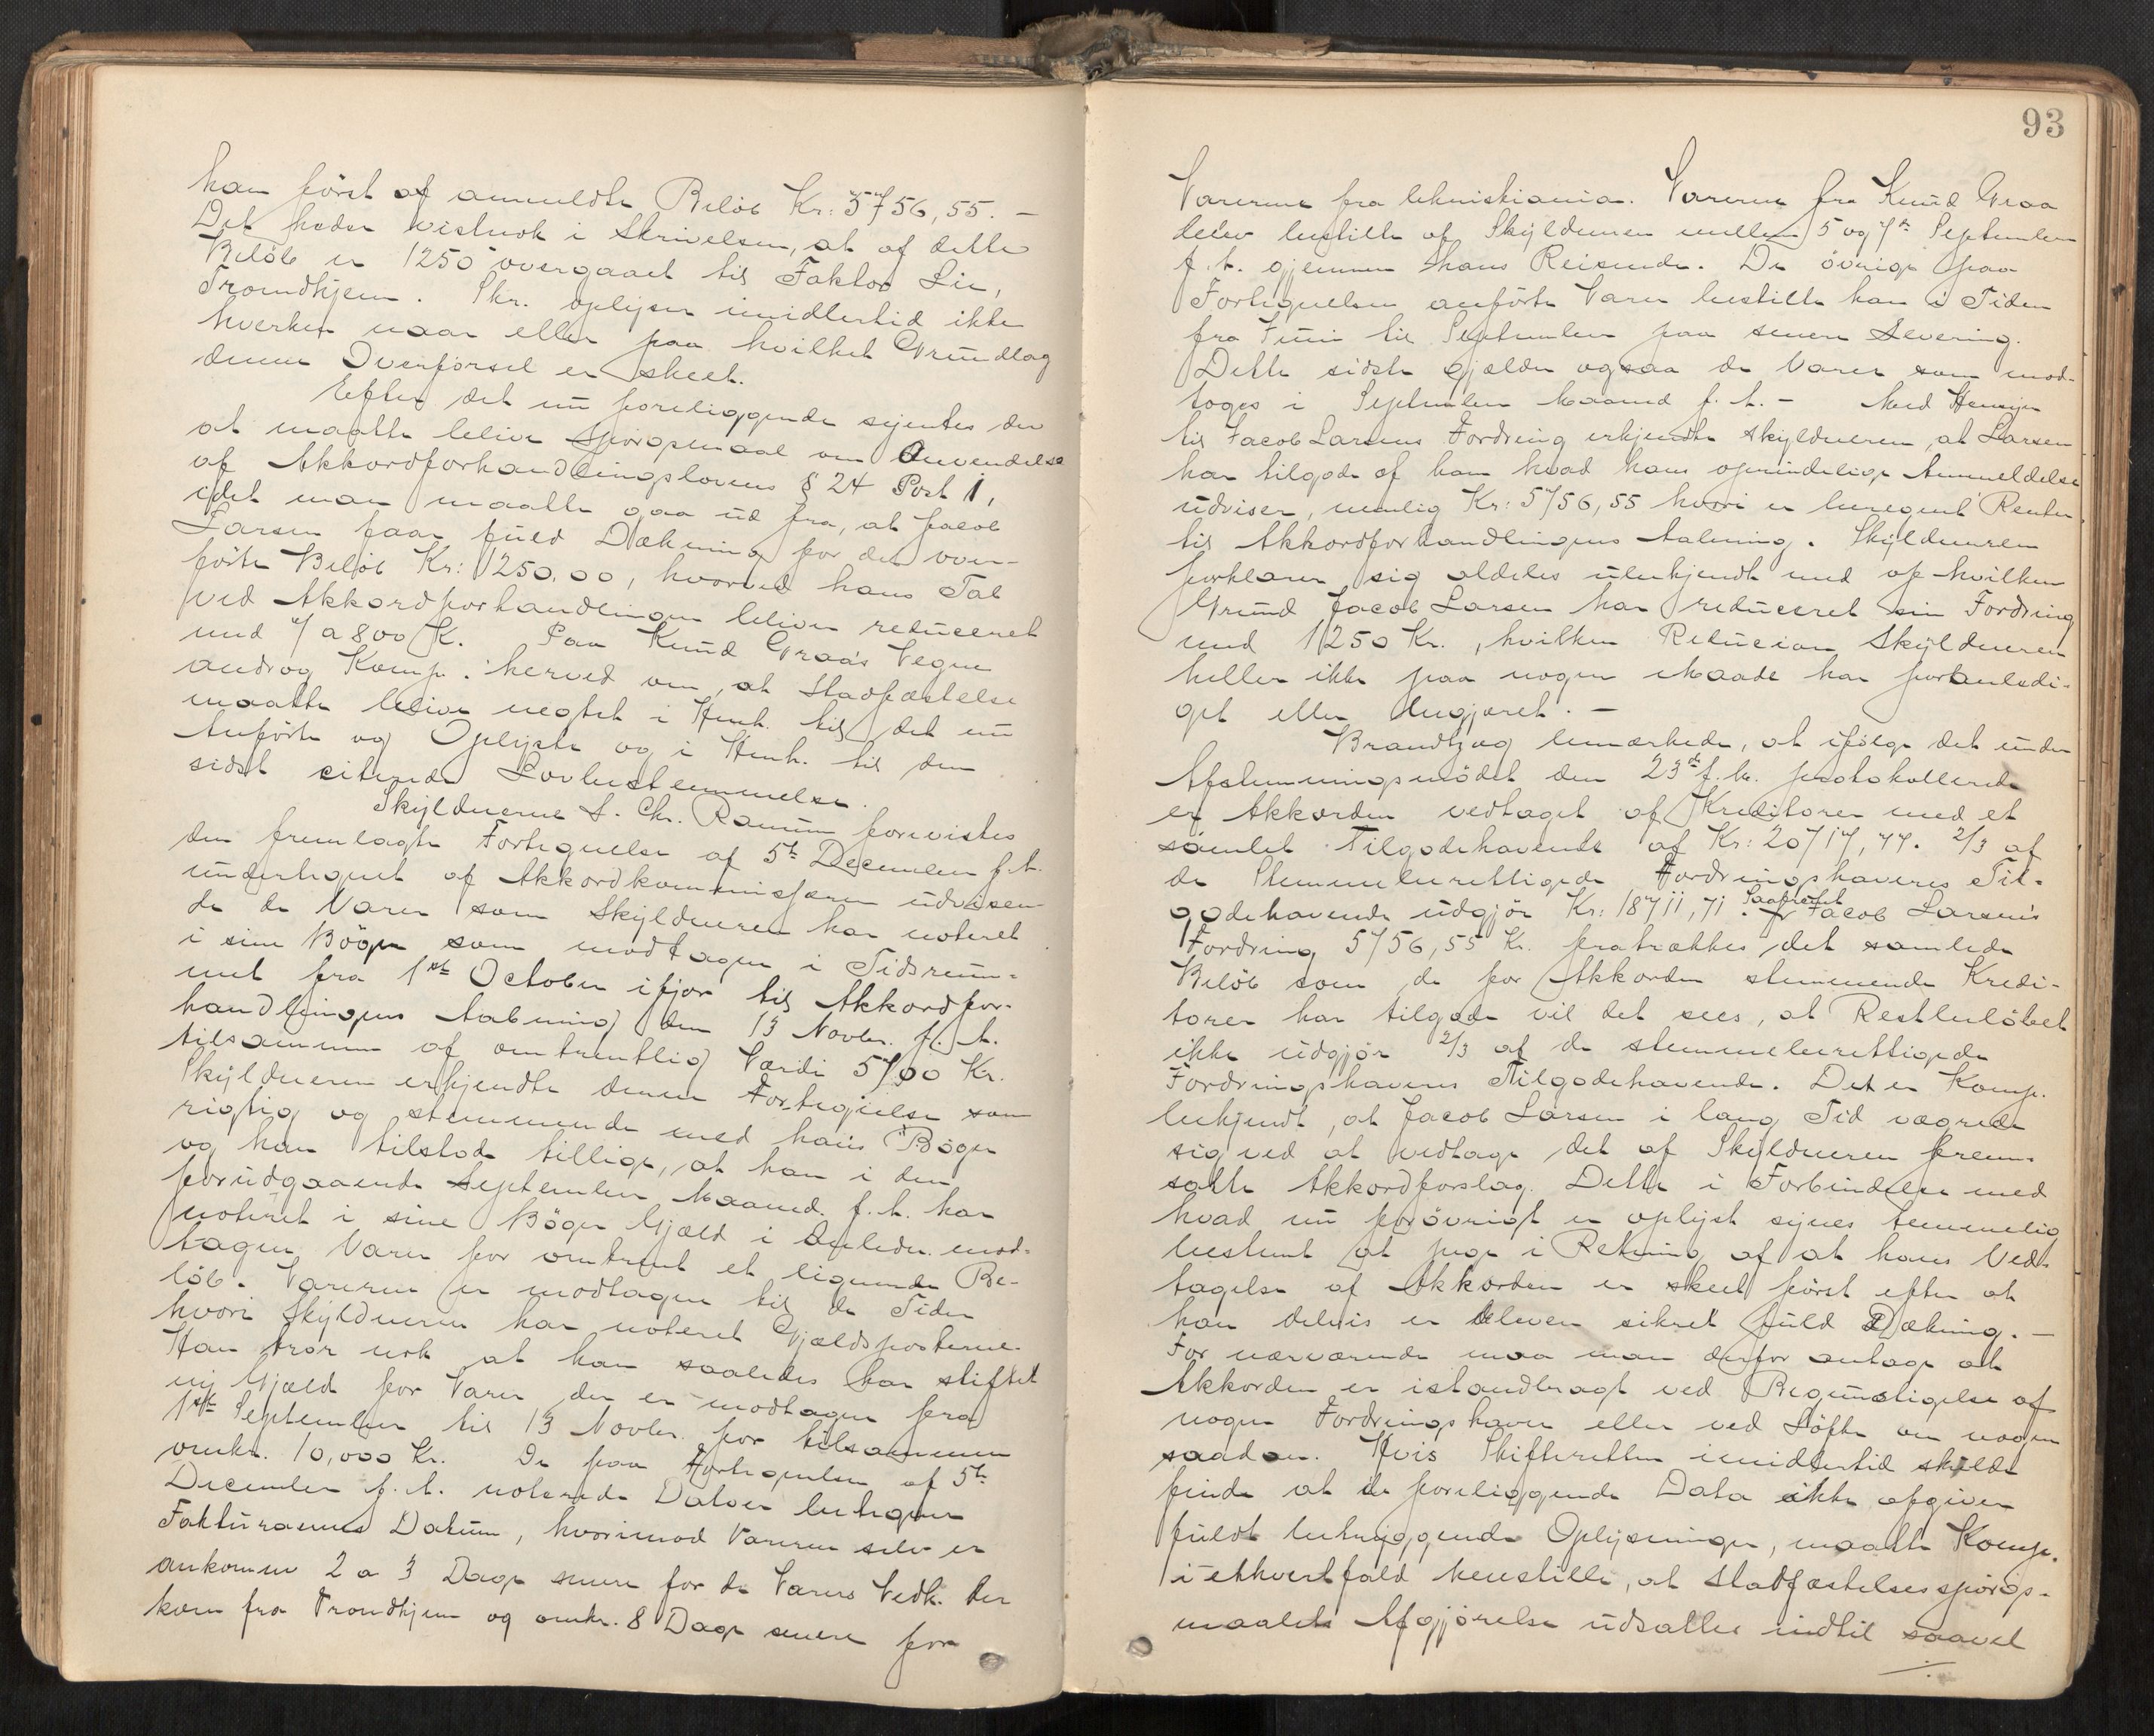 han först af anmeldte Belöb Kr: 5756,55. –
Det heder vistnok i Skrivelsen, at af dette
Belöb er 1250 overgaaet til Faktor Lie,
Trondhjem. Skr. oplyser imidlertid ikke
hverken naar eller paa hvilket Grundlag
denne Overförsel er skeet.
Efter det nu foreliggende syntes der
at maatte blive Spörgsmaal om Anvendelse
af Akkordforhandlingslovens § 24 Post 1,
idet man maatte gaa ud fra, at Jacob
Larsen faar fuld Dækning for det over-
förte Belöb Kr: 1250,00, hvorved hans Tab
ved Akkordforhandlingen bliver reduceret
med 7 a 800 K. Paa Knud Graa's Vegne
androg Komp. herved om, at Stadfæstelse
maatte blive negtet i Henh. til det nu
Anförte og Oplyste og i Henh. til den
sidst citerede Lovbestemmelse.
Skyldnerne S. Chr. Ramum forevistes
den fremlagte Fortegnelse af 5te December f. A.
undertegnet af Akkordkommissæren udvisen-
de de Varer som Skyldneren har noteret
i sine Böger som modtagen i Tidsrum-
met fra 1ste October ifjor til Akkordfor-
handlingens Aabning den 13 Novbr. f. A.
tilsammen af omtrentlig Værdi 5700 Kr.
Skyldneren erkjendte denne Fortegnelse som
rigtig og stemmende med hans Böger
og han tilstod tillige, at han i den
forudgaaende September Maaned f. A. har
noteret i sine Böger Gjæld i Anledn. mod-
tagne Varer for omtrent et lignende Be-
löb. Varerne er modtagne til de Tider
hvori Skyldneren har noteret Gjældsposterne.
Han tror nok at han saaledes har stiftet
ny Gjæld for Varer der er modtagne fra
1ste September til 13 Novbr. for tilsammen
omkr. 10,000 Kr. De paa Fortegnelsen af 5te
December f. A. noterede Datoer betegner
Fakturaernes Datum, hvorimod Varerne selv er
ankomne 2 a 3 Dage senere for de Varers Vedk. der
kom fra Trondhjem og omkr. 8 Dage senere for
93
Varerne fra Christiania. Varerne fra Knud Graa
blev bestilte af Skyldneren mellem 5 og 7de September
f. A. gjennem hans Reisende. De övrige paa
Fortegnelsen anförte Varer bestilte han i Tiden
fra Juni til September paa senere Levering.
Dette sidste gjælder ogsaa de Varer som mod-
toges i September Maaned f. A. – Med Hensyn
til Jacob Larsens Fordring erkjendte Skyldneren, at Larsen
har tilgode af ham hvad hans oprindelige Anmeldelse
udviser, nemlig Kr: 5756,55 hvori er beregnet Renter
til Akkordforhandlingens Aabning. Skyldneren
forklarer sig aldeles ubekjendt med af hvilken
Grund Jacob Larsen har reduceret sin Fordring
med 1250 Kr., hvilken Reducion Skyldneren
heller ikke paa nogen Maade har foranledi-
get eller begjæret. –
Brandtzæg bemærkede, at ifölge det under
Afstemningsmödet den 23de f. M. protokollerede
er Akkorden vedtaget af Kreditorer med et
samlet Tilgodehavende af Kr: 20717,77. 2/3 af
de Stemmeberettigede Fordringshaveres Til-
godehavende udgjör Kr: 18711,71. Saafremt Jacob Larsen's
Fordring 5756,55 Kr. fratrækkes det samlede
Belöb som de for Akkorden stemmende Kredi-
torer har tilgode vil det sees, at Restbelöbet
ikke udgjör 2/3 af de stemmeberettigede
Fordringshaveres Tilgodehavende. Det er Komp.
bekjendt, at Jacob Larsen i lang Tid vægrede
sig ved at vedtage det af Skyldneren frem-
satte Akkordforslag. Dette i Forbindelse med
hvad nu forövrigt er oplyst synes temmelig
bestemt at pege i Retning af at hans Ved-
tagelse af Akkorden er skeet först efter at
han delvis er bleven sikret fuld Dækning. –
For nærværende maa man derfor antage at
Akkorden er istandbragt ved Begunstigelse af
nogen Fordringshaver eller ved Löfte om nogen
saadan. Hvis Skifteretten imidlertid skulde
finde at de foreliggende Data ikke afgiver
fuldt betryggende Oplysninger, maatte Komp.
i ethvertfald henstille, at Stadfæstelsesspörgs-
maalets Afgjörelse udsættes indtil saavel